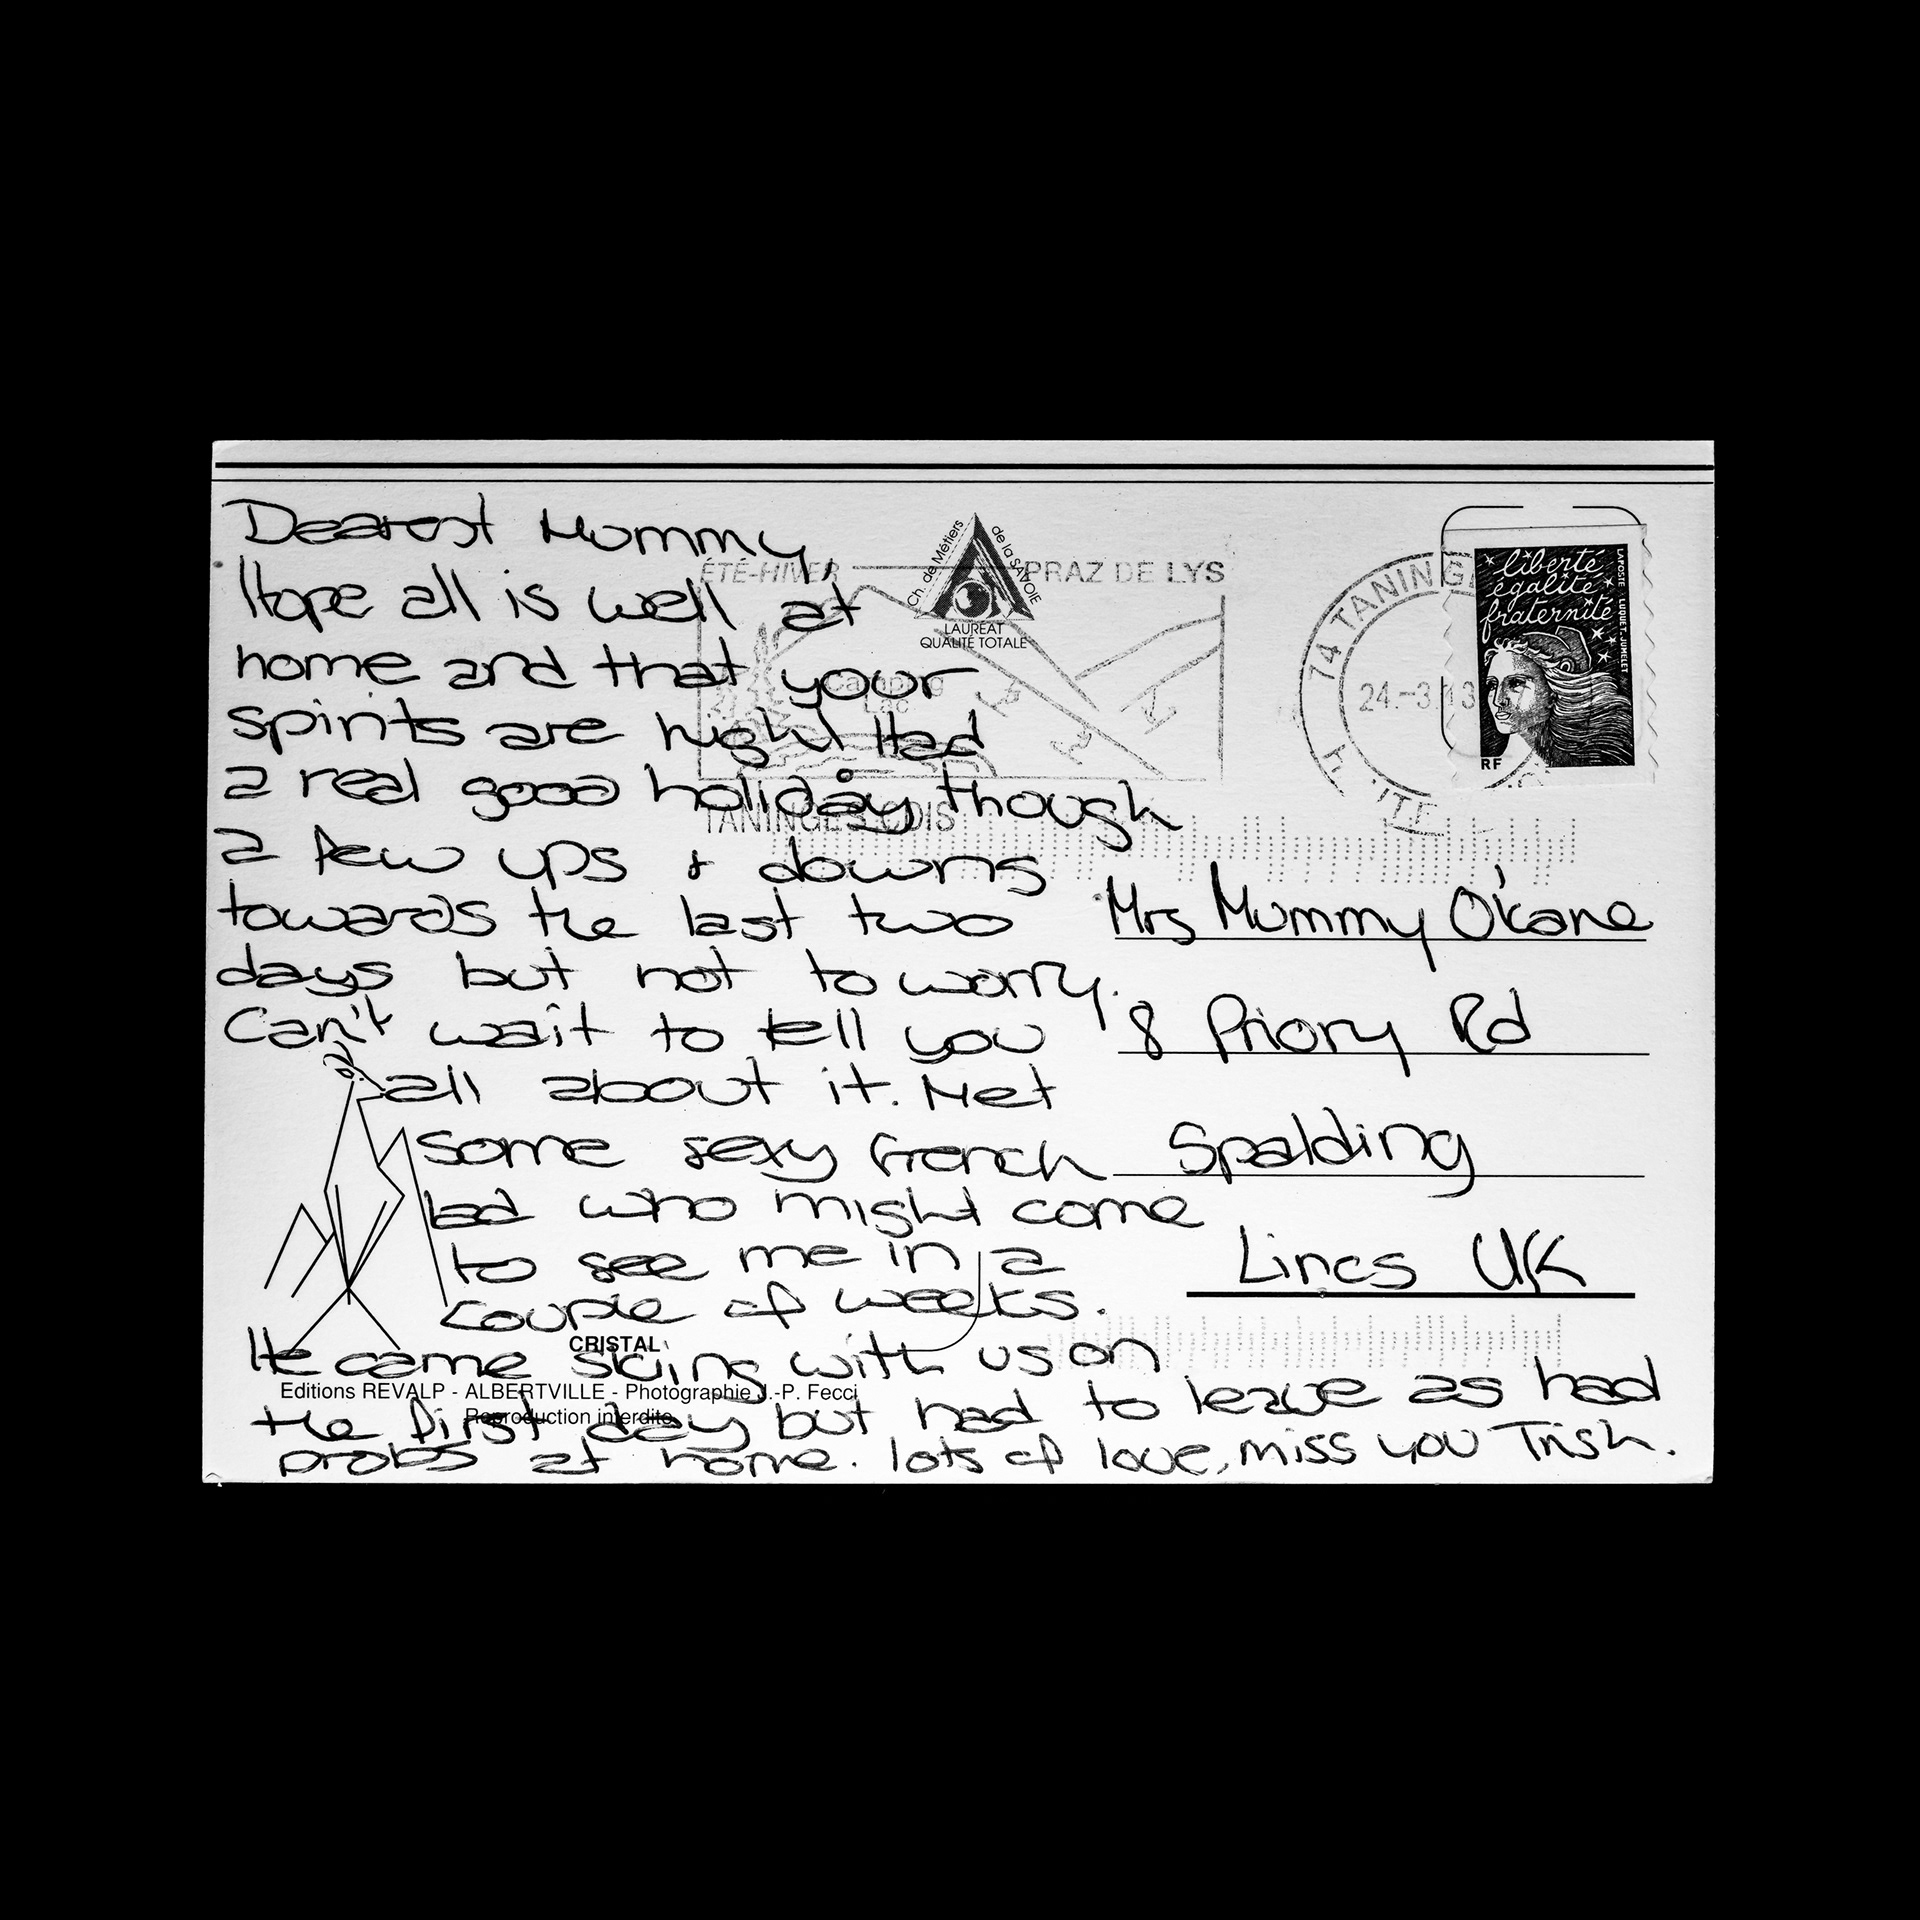 Dearest Mummy,
Hope all is well at
home and that your
spirits are high! Had
a real good holiday though
a few ups + downs
towards the last two
days but not to worry.
Can't wait to tell you
all about it. Met
some sexy french
lad who might come
to see me in a
couple of weeks.
He came skiing with us on
the first day but had to leave as had
probs at home. lots of love, miss you Trish.
CRISTAL
Editions REVALP - ALBERTVILLE - Photographie J.-P. Fecci
Reproduction interdite
Ch. de Métiers de la SAVOIE
LAURÉAT
QUALITÉ TOTALE
ÉTÉ-HIVER PRAZ DE LYS
Camping
Lac
TANINGES
74 TANING
24.-3
liberté
égalité
fraternité
LA POSTE LUQUET-JUMELET
RF
Mrs Mummy O'kane
8 Priory Rd
Spalding
Lincs UK